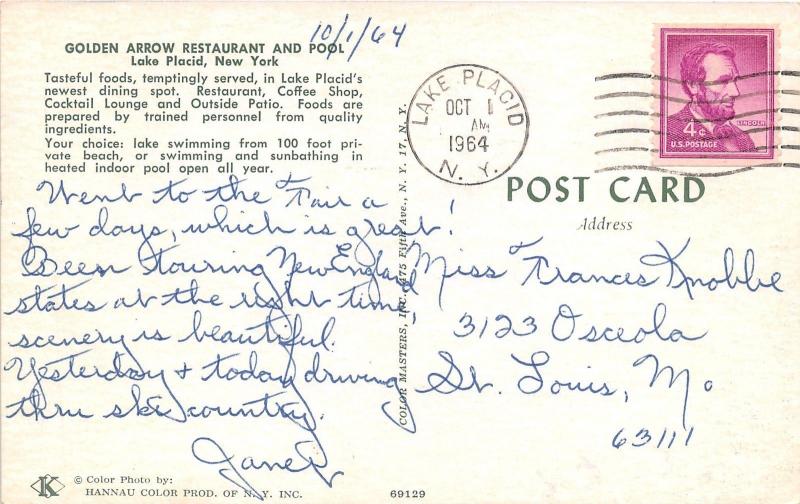 10/1/64
GOLDEN ARROW RESTAURANT AND POOL
Lake Placid, New York
Tasteful foods, temptingly served, in Lake Placid's
newest dining spot. Restaurant, Coffee Shop,
Cocktail Lounge and Outside Patio. Foods are
prepared by trained personnel from quality
ingredients.
Your choice: lake swimming from 100 foot pri-
vate beach, or swimming and sunbathing in
heated indoor pool open all year.
Went to the Fair a
few days, which is great!
Been touring New England
states at the right time,
scenery is beautiful.
Yesterday + today driving
thru ski country.
Janet
K
© Color Photo by:
HANNAU COLOR PROD. OF N. Y. INC.
69129
COLOR MASTERS, INC. 475 Fifth Ave., N. Y. 17, N. Y.
LAKE PLACID
OCT 1
AM
1964
N. Y.
LINCOLN
4¢
U.S. POSTAGE
POST CARD
Address
Miss Frances Knobbe
3123 Osceola
St. Louis, Mo
63111